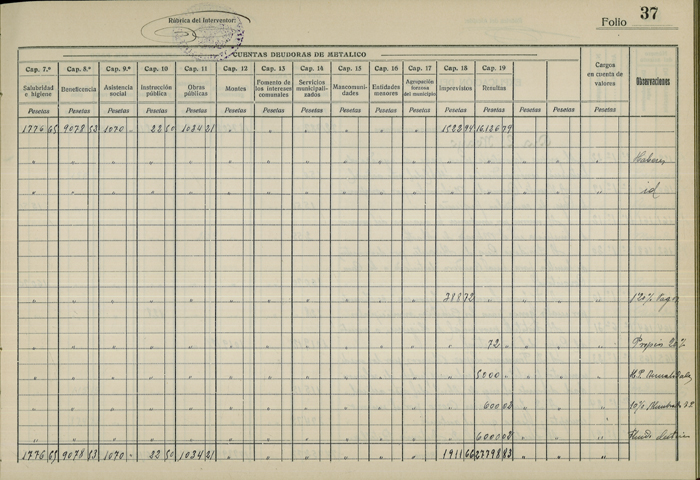 Rúbrica del Interventor:
Folio 37
CUENTAS DEUDORAS DE METALICO
Cap. 7.º Cap. 8.º Cap. 9.º Cap. 10 Cap. 11 Cap. 12 Cap. 13 Cap. 14 Cap. 15 Cap. 16 Cap. 17 Cap. 18 Cap. 19
Salubridad e higiene Beneficencia Asistencia social Instrucción pública Obras públicas Montes Fomento de los intereses comunales Servicios municipalizados Mancomunidades Entidades menores Agrupación forzosa del municipio Imprevistos Resultas Cargos en cuenta de valores Observaciones
Pesetas Pesetas Pesetas Pesetas Pesetas Pesetas Pesetas Pesetas Pesetas Pesetas Pesetas Pesetas Pesetas Pesetas Pesetas Pesetas
1776 65 9078 53 1070 22 50 1034 21 1522 94 16126 79
id
388 72 1'20% Pagos
72 Propios 20%
5000
600 02 10%
6000 02
1776 65 9078 53 1070 22 50 1034 21 1911 66 27798 83